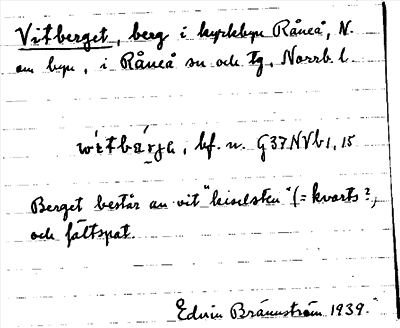 Vitberget, berg i kyrkbyn Råneå, N.
om byn, i Råneå sn och tg, Norrb. l.
bf. n. G37NVb1,15
Berget består av vit "kiselsten" (= kvarts?,
och fältspat.
Edvin Brännström 1939.